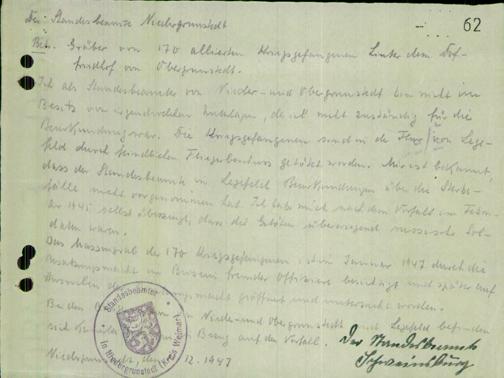 62
Der Standesbeamte Niedergrunstedt
Betr. Gräber von 170 alliierten Kriegsgefangenen hinter dem Dorf-
friedhof von Obergrunstedt.
Ich als Standesbeamter von Nieder- und Obergrunstedt bin nicht im
Besitz von irgendwelchen Unterlagen, da ich nicht zuständig für die
Beurkundung war. Die Kriegsgefangenen sind in der Flur von Lege-
feld durch feindlichen Fliegerbeschuss getötet worden. Mir ist bekannt,
dass der Standesbeamte in Legefeld Beurkundungen über die Sterbe-
fälle nicht vorgenommen hat. Ich habe mich nach dem Vorfall im Febru-
ar 1945 selbst überzeugt, dass die Getöten überwiegend russische Sol-
daten waren.
Das Massengrab der 170 Kriegsgefangenen ist im Januar 1947 durch die
Besatzungsmacht im Beisein fremder Offiziere besichtigt und später auf
der Besatzungsmacht geöffnet und untersucht worden.
Bei den von Nieder- und Obergrunstedt und Legefeld befinden
sich in Bezug auf den Vorfall.
Niedergrunstedt, den 12.1947
Der Standesbeamte
Schweinsburg
Standesbeamter
in Niedergrunstedt (Kreis Weimar)